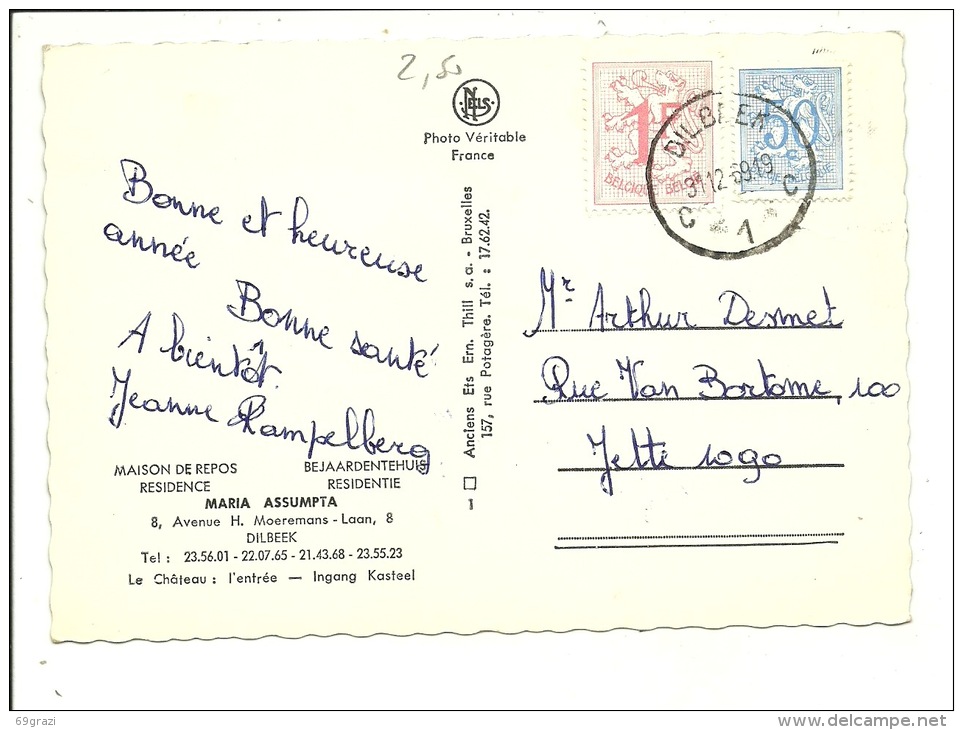 2,50
NELS
Photo Véritable
France
1F
BELGIQUE BELGIË
50
DILBEEK
31 12 69 19
C 1 C
Bonne et heureuse
année
Bonne santé
A bientôt.
Jeanne Rampelberg
MAISON DE REPOS
RESIDENCE
BEJAARDENTEHUIS
RESIDENTIE
MARIA ASSUMPTA
8, Avenue H. Moeremans - Laan, 8
DILBEEK
Tel : 23.56.01 - 22.07.65 - 21.43.68 - 23.55.23
Le Château : l'entrée — Ingang Kasteel
Anciens Ets Ern. Thill s.a. - Bruxelles
157, rue Potagère. Tél. : 17.62.42.
1
Mr Arthur Desmet
Rue Van Bortome, 100
Jette 1090
69grazi
delcampe.net